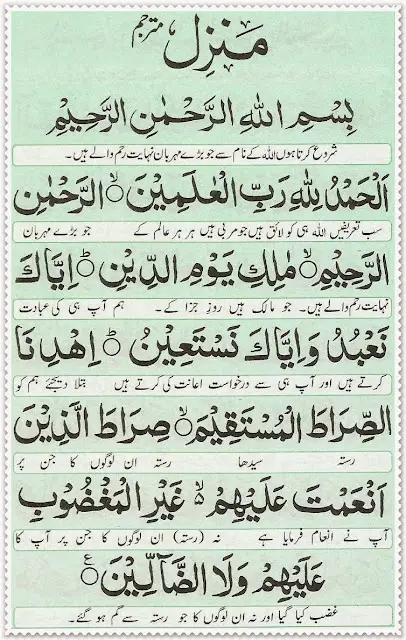 منزل مترجم
بِسْمِ اللهِ الرَّحْمٰنِ الرَّحِيْمِ
شروع کرتا ہوں اللہ کے نام سے جو بڑے مہربان نہایت رحم والے ہیں۔
اَلْحَمْدُ لِلّٰهِ رَبِّ الْعٰلَمِيْنَ ۙ الرَّحْمٰنِ
سب تعریفیں اللہ ہی کو لائق ہیں جو مربی ہیں ہر ہر عالم کے جو بڑے مہربان
الرَّحِيْمِ ۙ مٰلِكِ يَوْمِ الدِّيْنِ ؕ اِيَّاكَ
نہایت رحم والے ہیں۔ جو مالک ہیں روز جزا کے۔ ہم آپ ہی کی عبادت
نَعْبُدُ وَاِيَّاكَ نَسْتَعِيْنُ ؕ اِهْدِنَا
کرتے ہیں اور آپ ہی سے درخواست اعانت کی کرتے ہیں بتلا دیجئے ہم کو
الصِّرَاطَ الْمُسْتَقِيْمَ ۙ صِرَاطَ الَّذِيْنَ
رستہ سیدھا رستہ ان لوگوں کا جن پر
اَنْعَمْتَ عَلَيْهِمْ ۙ غَيْرِ الْمَغْضُوْبِ
آپ نے انعام فرمایا ہے نہ (رستہ) ان لوگوں کا جن پر آپ کا
عَلَيْهِمْ وَلَا الضَّآلِّيْنَ ع
غضب کیا گیا اور نہ ان لوگوں کا جو رستہ سے گم ہو گئے۔